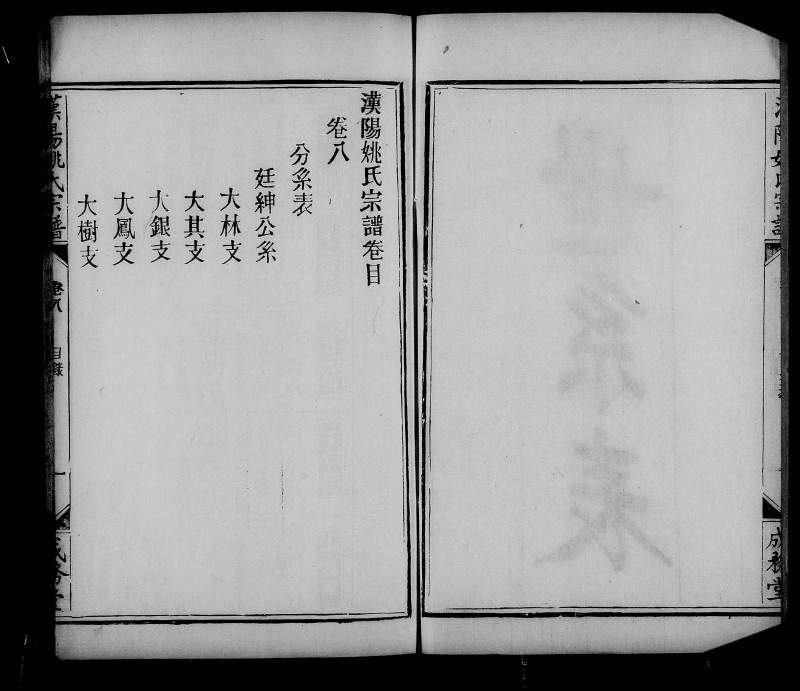 成務堂
漢陽姚氏宗譜卷目
卷八
分系表
廷紳公系
大林支
大其支
大銀支
大鳳支
大樹支
漢陽姚氏宗譜
卷八
目錄
一
成務堂